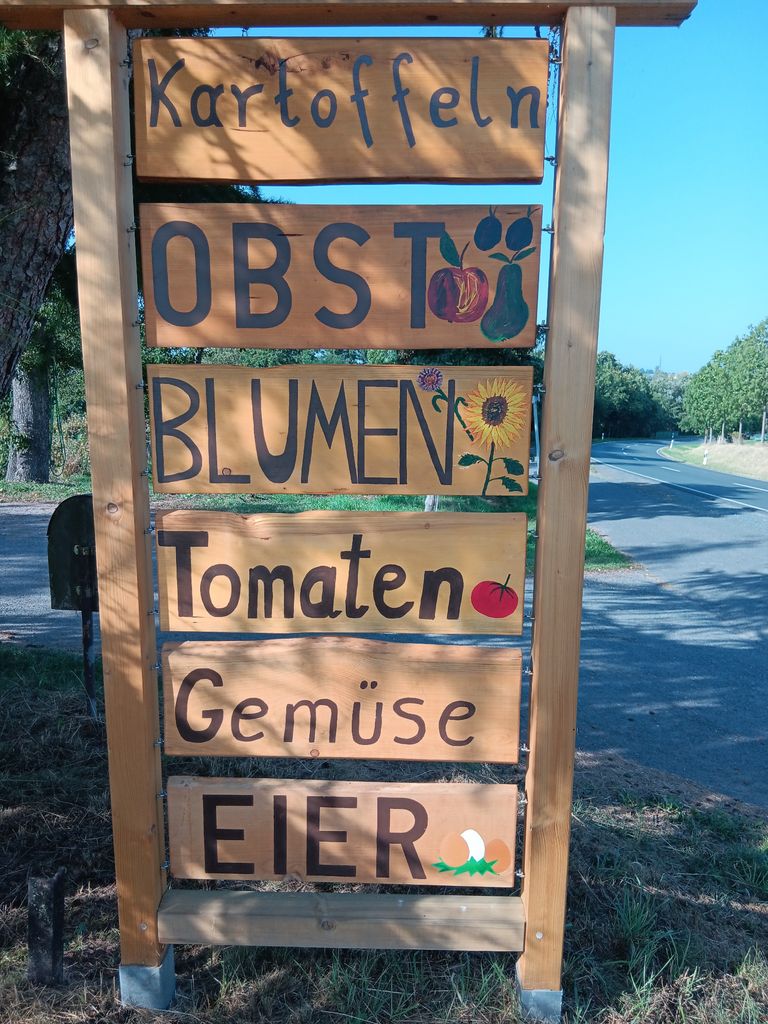 Kartoffeln
OBST
BLUMEN
Tomaten
Gemüse
EIER